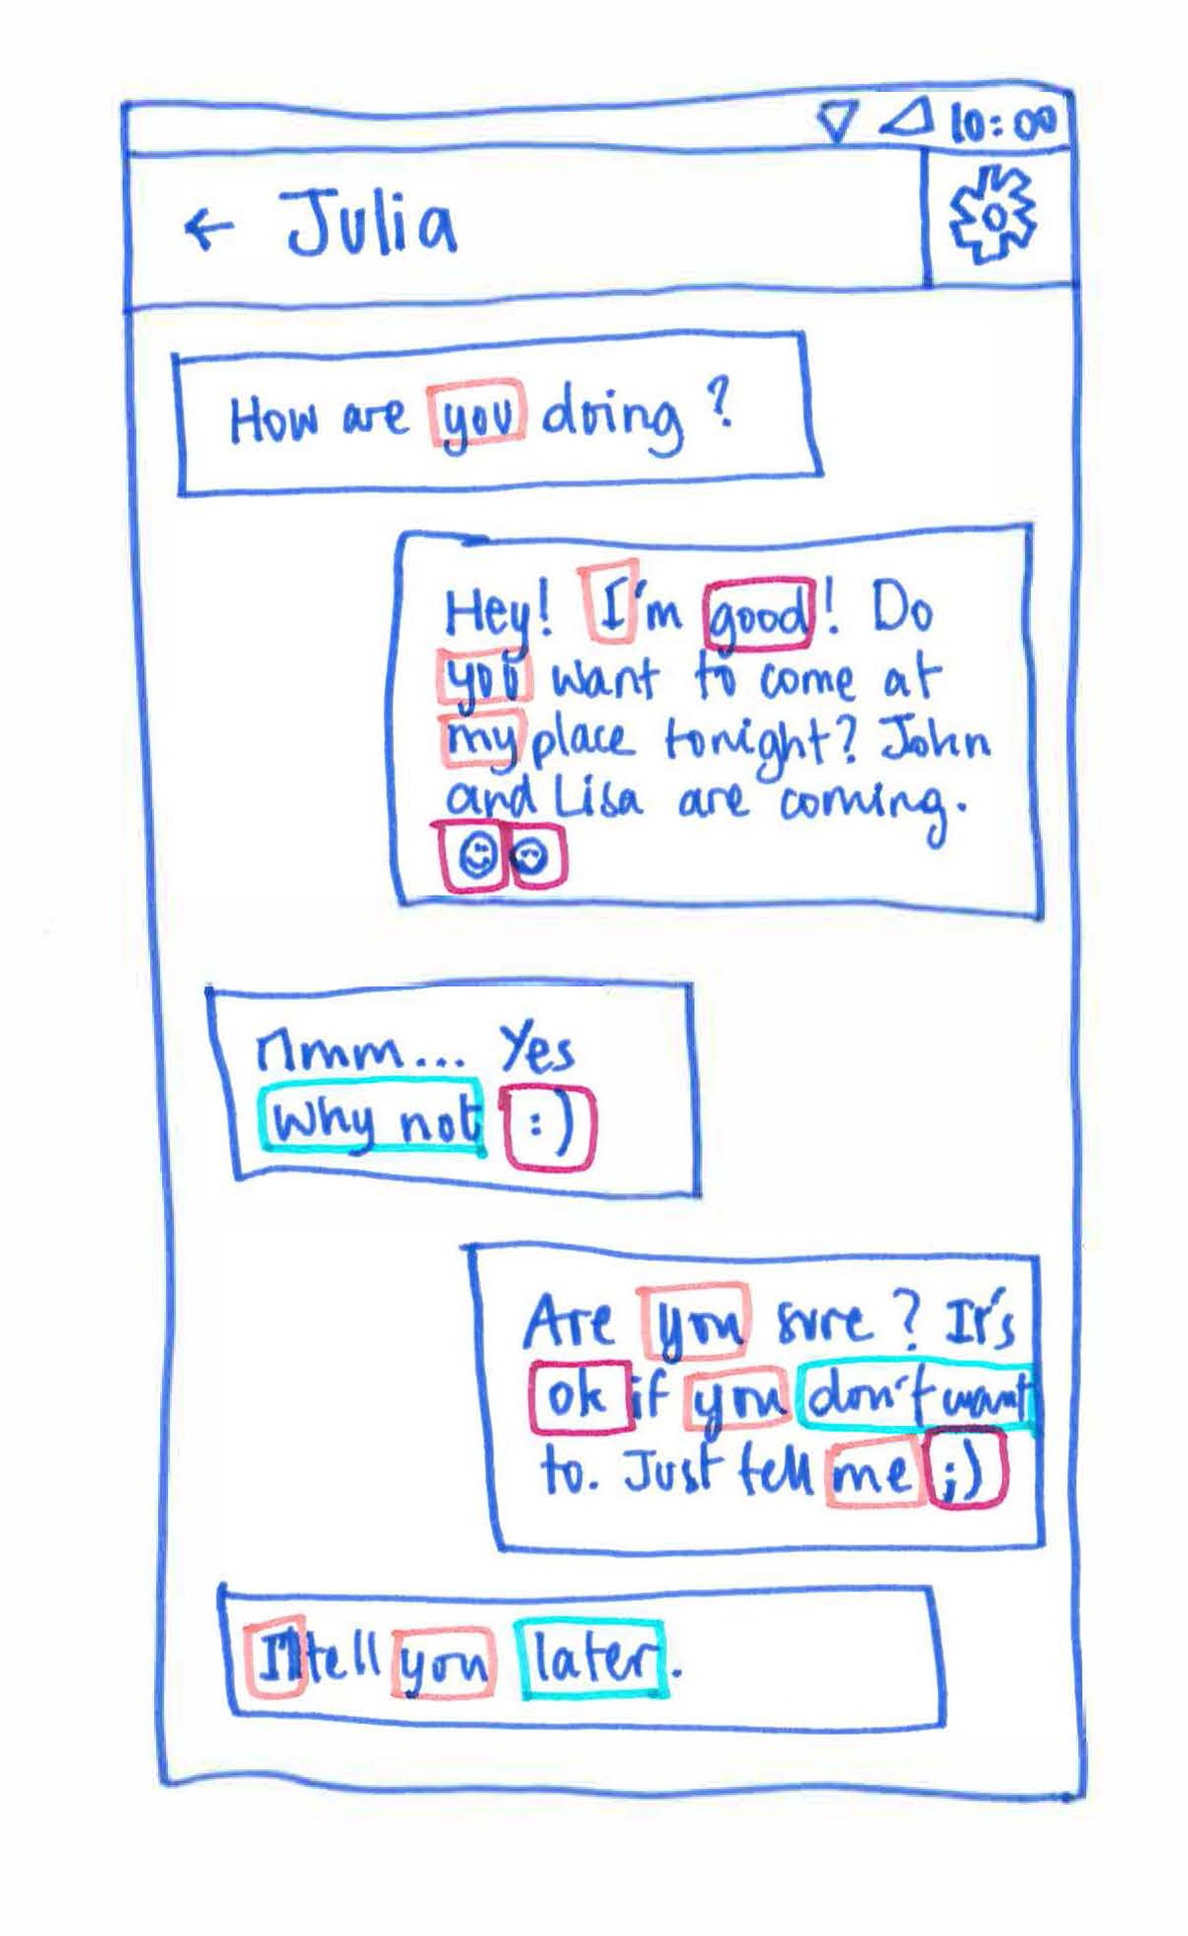 10:00
← Julia
How are you doing ?
Hey! I'm good! Do
you want to come at
my place tonight? John
and Lisa are coming.
☺😍
Mmm... Yes
Why not :)
Are you sure? It's
ok if you don't want
to. Just tell me ;)
I'll tell you later.